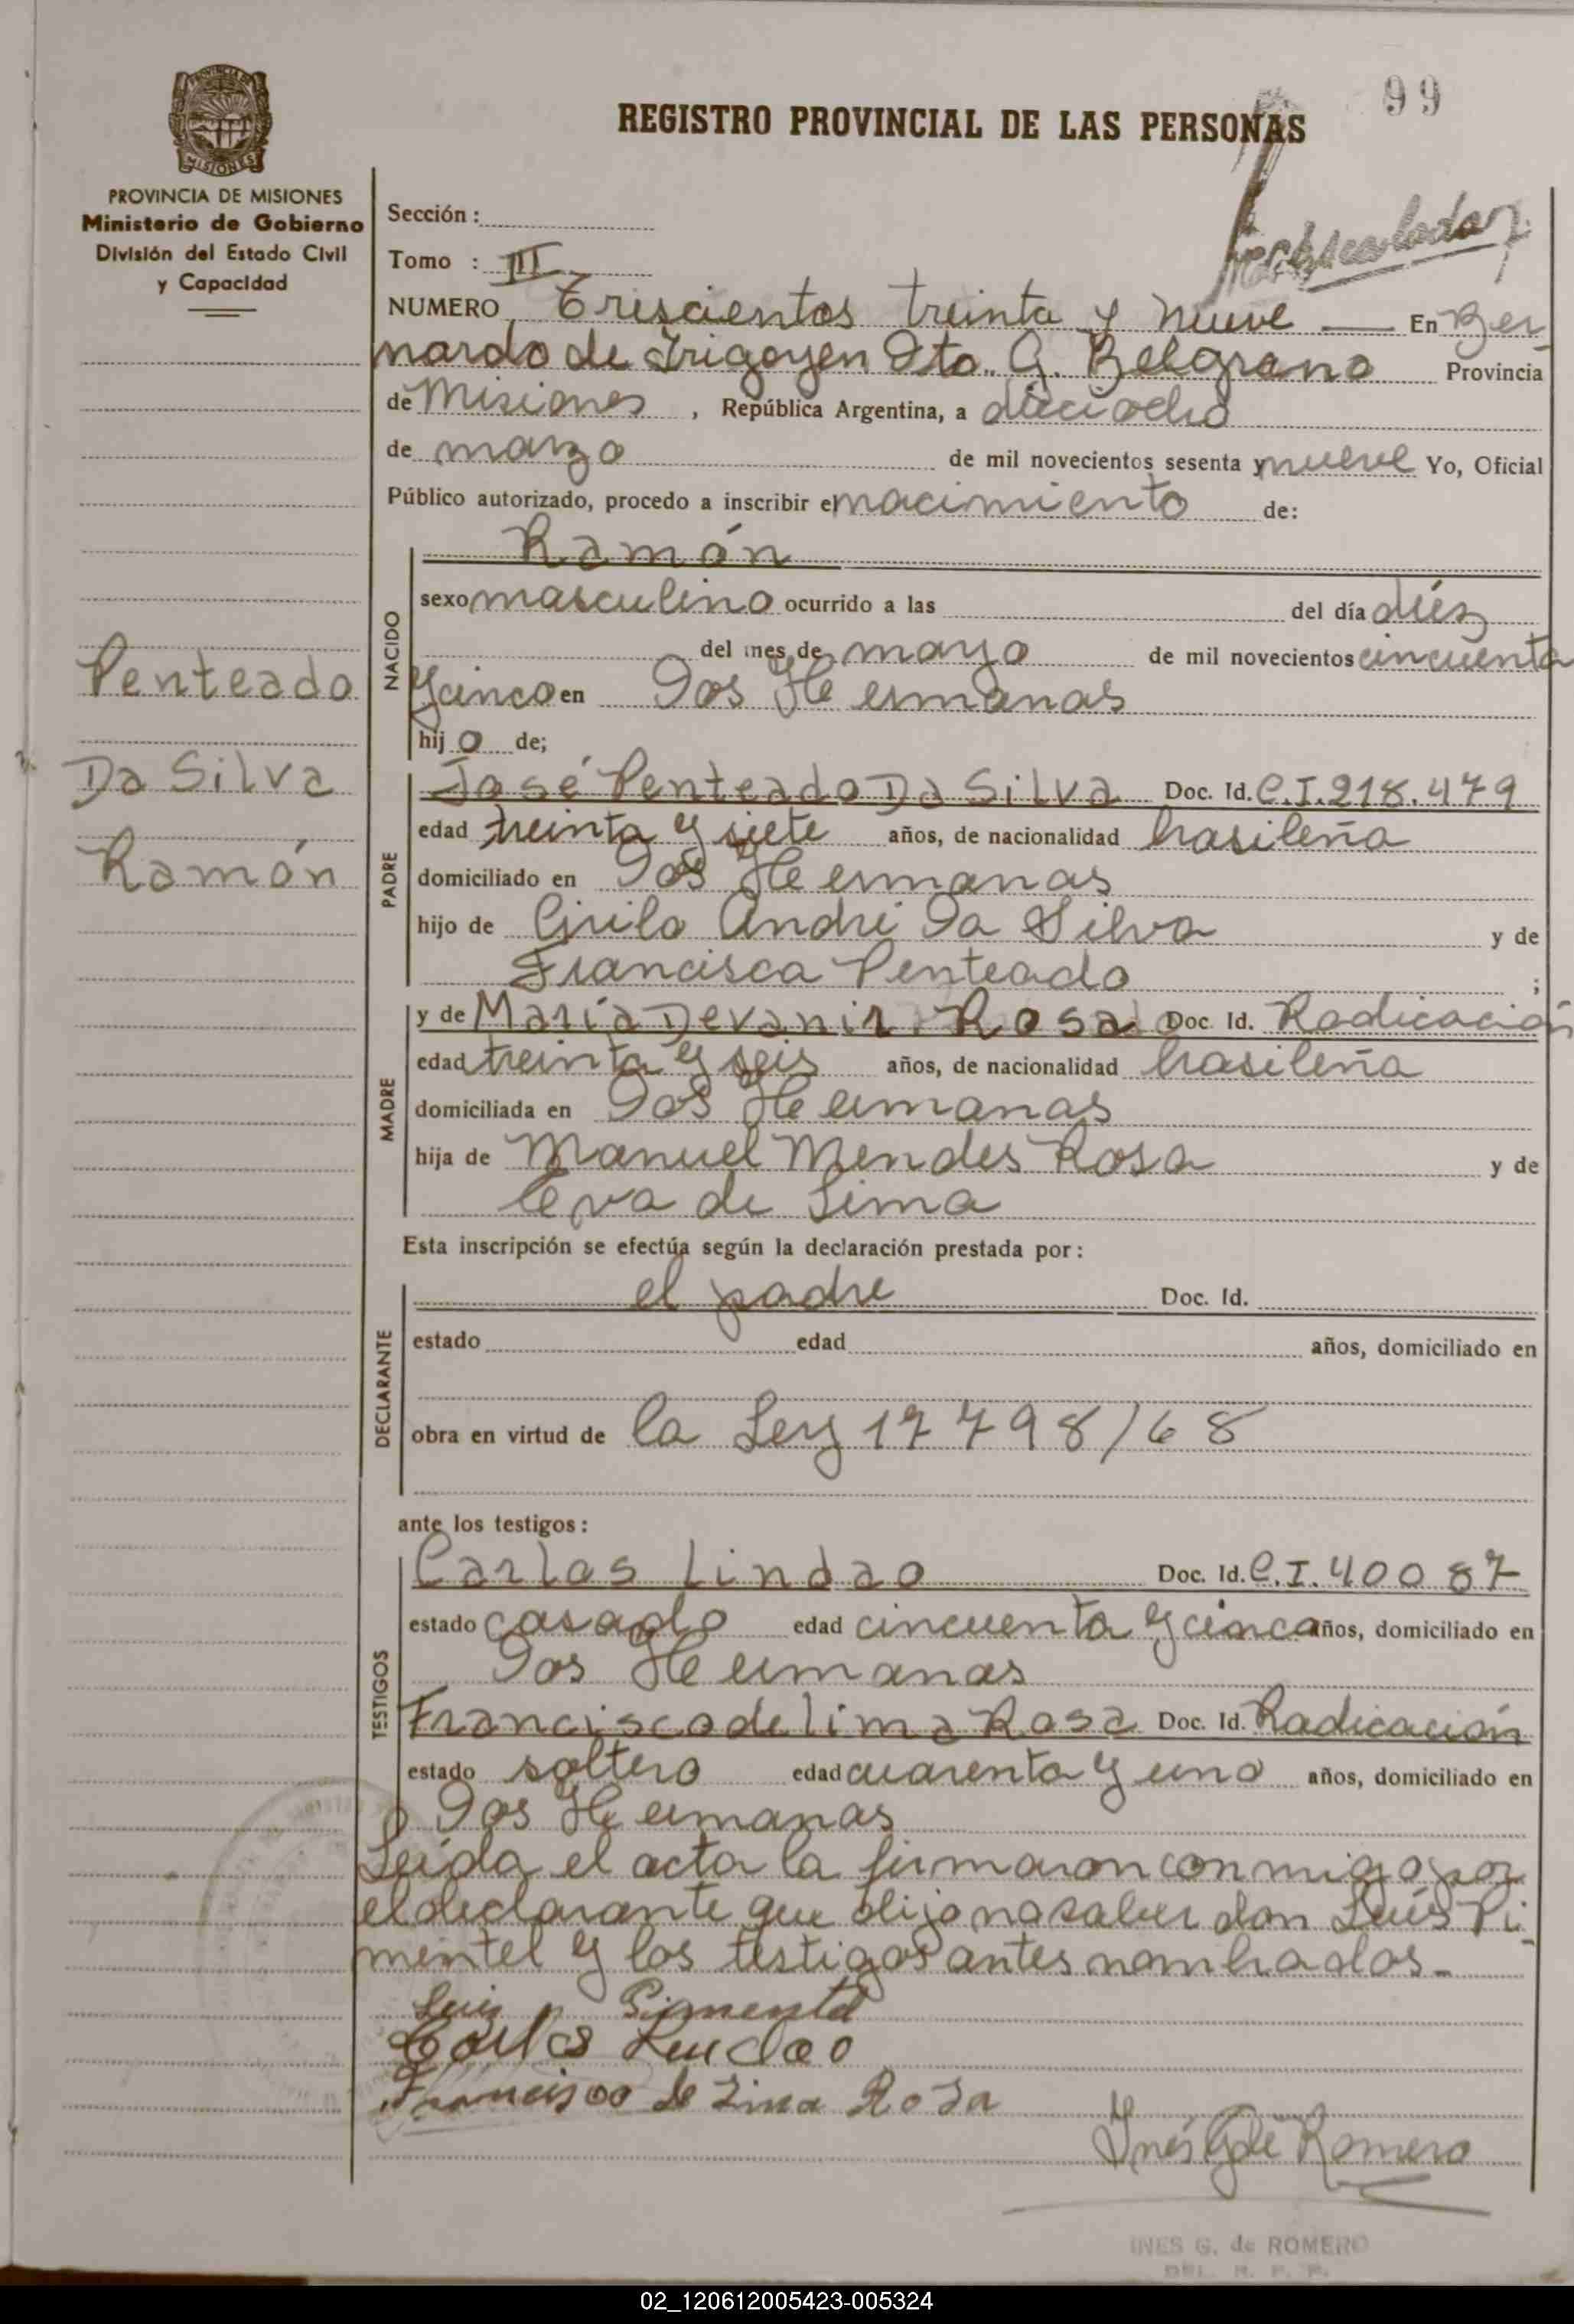 99
REGISTRO PROVINCIAL DE LAS PERSONAS
PROVINCIA DE MISIONES
MISIONES
PROVINCIA DE MISIONES
Ministerio de Gobierno
División del Estado Civil
y Capacidad
Sección:
Tomo : III
NUMERO Trescientos treinta y nueve — En Ber
nardo de Irigoyen Dto. G. Belgrano Provincia
de Misiones, República Argentina, a dieciocho
de marzo de mil novecientos sesenta y nueve Yo, Oficial
Público autorizado, procedo a inscribir el nacimiento de:
NACIDO
Ramón
sexo masculino ocurrido a las del día diéz
del mes de mayo de mil novecientos cincuenta
y cinco en Dos Hermanas
hijo de;
Penteado
Da Silva
Ramón
PADRE
José Penteado Da Silva Doc. Id. C.I. 218.479
edad treinta y siete años, de nacionalidad brasileña
domiciliado en Dos Hermanas
hijo de Cirilo André Da Silva y de
Francisca Penteado ;
MADRE
y de María Devanir Rosa Doc. Id. Radicación
edad treinta y seis años, de nacionalidad brasileña
domiciliada en Dos Hermanas
hija de Manuel Mendes Rosa y de
Eva de Lima
Esta inscripción se efectúa según la declaración prestada por:
DECLARANTE
el padre Doc. Id.
estado edad años, domiciliado en
obra en virtud de la Ley 17798/68
ante los testigos:
TESTIGOS
Carlos Lindao Doc. Id. C.I. 40087
estado casado edad cincuenta y cinco años, domiciliado en
Dos Hermanas
Francisco de Lima Rosa Doc. Id. Radicación
estado soltero edad cuarenta y uno años, domiciliado en
Dos Hermanas
Leída el acta la firmaron conmigo por
el declarante que dijo no saber don Luís Pi
mentel y los testigos antes nombrados.-
Luis Pimentel
Carlos Lindao
Francisco de Lima Rosa
Inés G de Romero
INES G. de ROMERO
DEL. R. P. P.
02_120612005423-005324